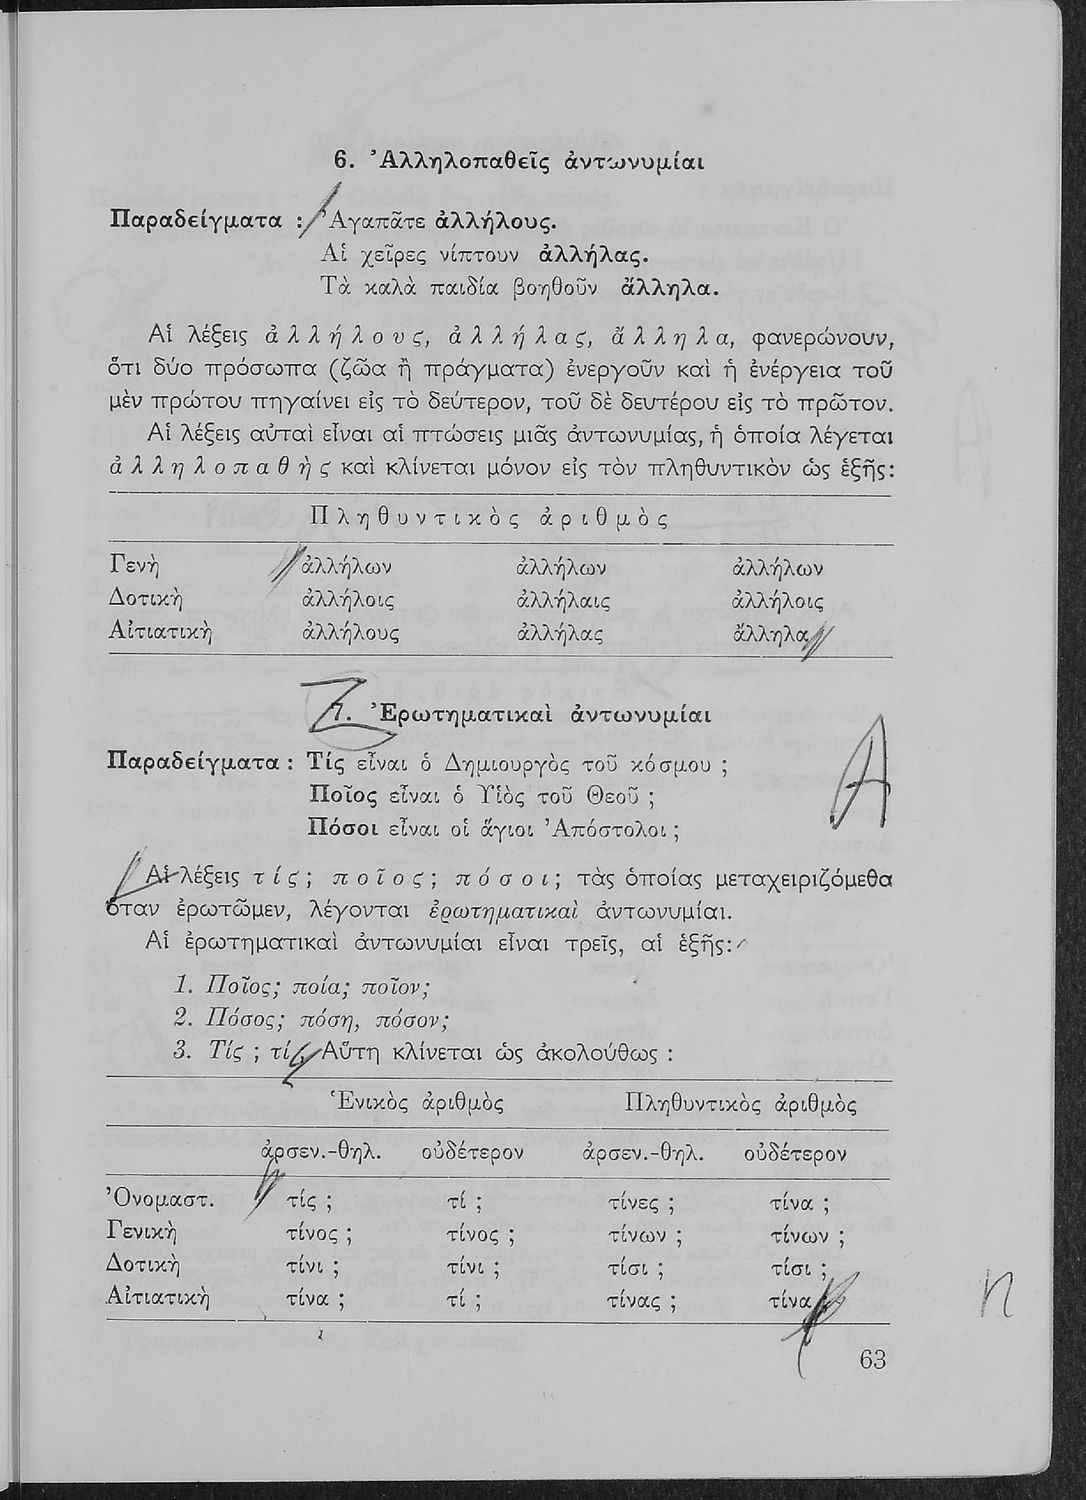 6. Ἀλληλοπαθεῖς ἀντωνυμίαι
Παραδείγματα : Ἀγαπᾶτε ἀλλήλους.
Αἱ χεῖρες νίπτουν ἀλλήλας.
Τὰ καλὰ παιδία βοηθοῦν ἄλληλα.
Αἱ λέξεις ἀλλήλους, ἀλλήλας, ἄλληλα, φανερώνουν,
ὅτι δύο πρόσωπα (ζῶα ἢ πράγματα) ἐνεργοῦν καὶ ἡ ἐνέργεια τοῦ
μὲν πρώτου πηγαίνει εἰς τὸ δεύτερον, τοῦ δὲ δευτέρου εἰς τὸ πρῶτον.
Αἱ λέξεις αὐταὶ εἶναι αἱ πτώσεις μιᾶς ἀντωνυμίας, ἡ ὁποία λέγεται
ἀλληλοπαθὴς καὶ κλίνεται μόνον εἰς τὸν πληθυντικὸν ὡς ἑξῆς:
Πληθυντικὸς ἀριθμὸς
Γενὴ ἀλλήλων ἀλλήλων ἀλλήλων
Δοτικὴ ἀλλήλοις ἀλλήλαις ἀλλήλοις
Αἰτιατικὴ ἀλλήλους ἀλλήλας ἄλληλα
7. Ἐρωτηματικαὶ ἀντωνυμίαι
Παραδείγματα : Τίς εἶναι ὁ Δημιουργὸς τοῦ κόσμου ;
Ποῖος εἶναι ὁ Υἱὸς τοῦ Θεοῦ ;
Πόσοι εἶναι οἱ ἅγιοι Ἀπόστολοι ;
Α
Αἱ λέξεις τίς; ποῖος; πόσοι; τὰς ὁποίας μεταχειριζόμεθα
ὅταν ἐρωτῶμεν, λέγονται ἐρωτηματικαὶ ἀντωνυμίαι.
Αἱ ἐρωτηματικαὶ ἀντωνυμίαι εἶναι τρεῖς, αἱ ἑξῆς:
1. Ποῖος; ποία; ποῖον;
2. Πόσος; πόση, πόσον;
3. Τίς ; τί; Αὕτη κλίνεται ὡς ἀκολούθως :
Ἑνικὸς ἀριθμὸς Πληθυντικὸς ἀριθμὸς
ἀρσεν.-θηλ. οὐδέτερον ἀρσεν.-θηλ. οὐδέτερον
Ὀνομαστ. τίς ; τί ; τίνες ; τίνα ;
Γενικὴ τίνος ; τίνος ; τίνων ; τίνων ;
Δοτικὴ τίνι ; τίνι ; τίσι ; τίσι ;
Αἰτιατικὴ τίνα ; τί ; τίνας ; τίνα
63